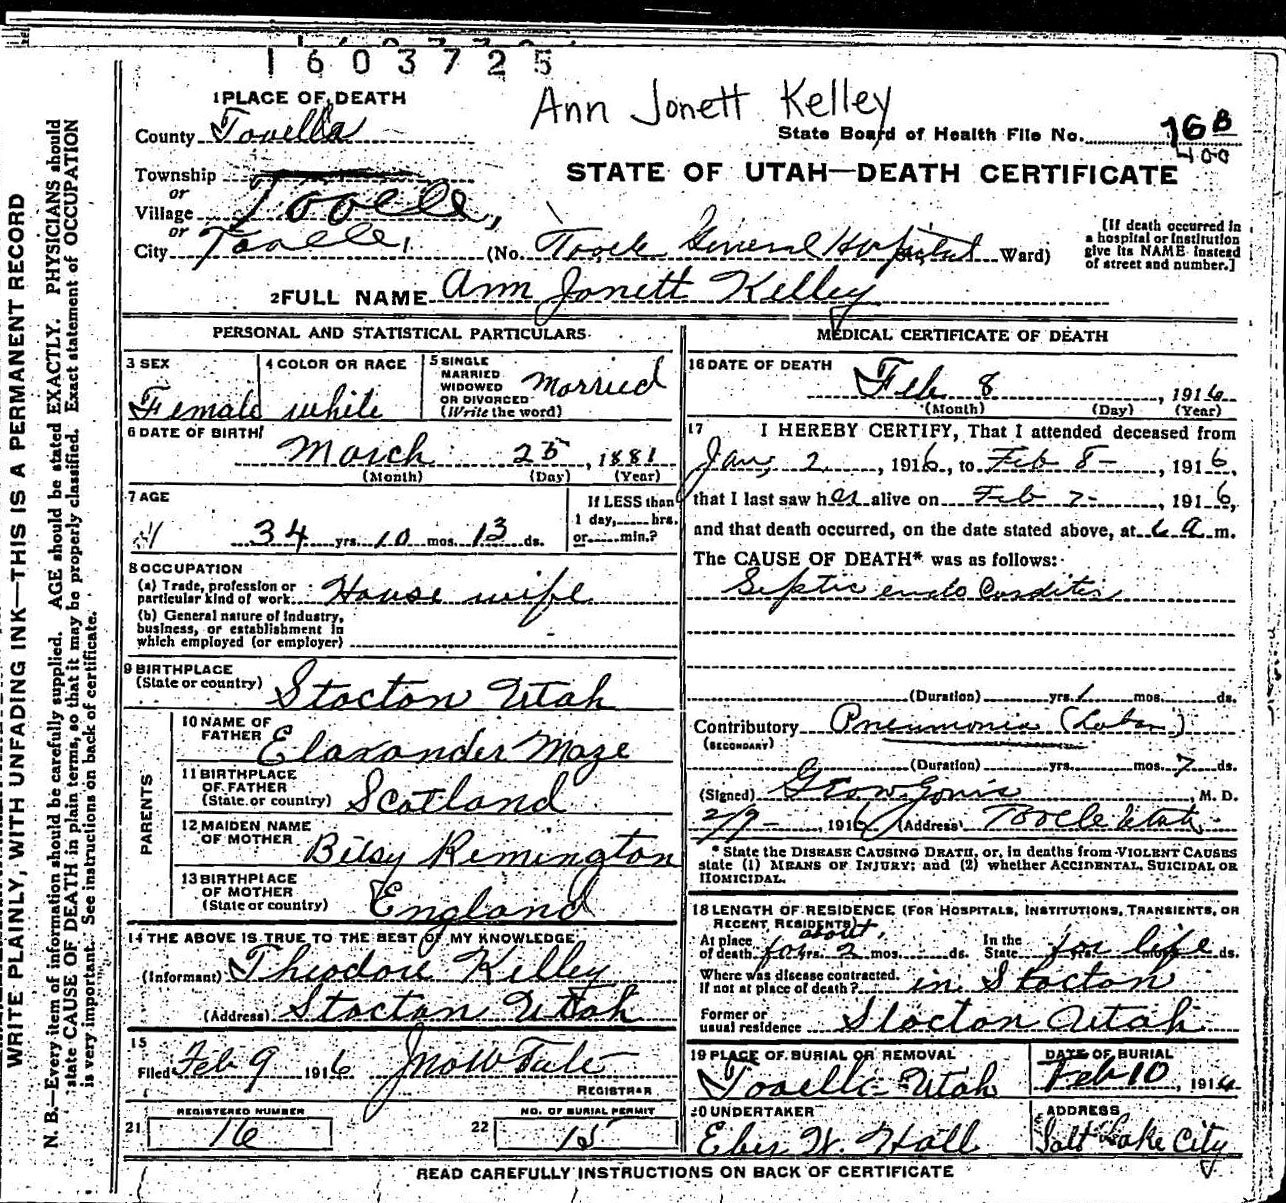 1603725
Ann Jonett Kelley
1 PLACE OF DEATH
County Tooella
State Board of Health File No. 168
400
STATE OF UTAH—DEATH CERTIFICATE
Township
or
Village Tooele,
or
City Tooele, (No. Tooele General Hospital Ward)
[If death occurred in
a hospital or institution
give its NAME instead
of street and number.]
2 FULL NAME Ann Jonett Kelley
PERSONAL AND STATISTICAL PARTICULARS
3 SEX
Female
4 COLOR OR RACE
white
5 SINGLE
MARRIED
WIDOWED
OR DIVORCED
(Write the word)
Married
6 DATE OF BIRTH
March 25, 1881
(Month) (Day) (Year)
7 AGE
34 yrs. 10 mos. 13 ds.
If LESS than
1 day, hrs.
or min.?
8 OCCUPATION
(a) Trade, profession or
particular kind of work. House wife
(b) General nature of industry,
business, or establishment in
which employed (or employer)
9 BIRTHPLACE
(State or country) Stocton Utah
PARENTS
10 NAME OF
FATHER Elaxander Maze
11 BIRTHPLACE
OF FATHER
(State or country) Scotland
12 MAIDEN NAME
OF MOTHER Bitsy Remington
13 BIRTHPLACE
OF MOTHER
(State or country) England
14 THE ABOVE IS TRUE TO THE BEST OF MY KNOWLEDGE
(Informant) Theodore Kelley
(Address) Stocton Utah
15
Filed Feb 9 1916
REGISTRAR
REGISTERED NUMBER
21 16
NO. OF BURIAL PERMIT
22 15
MEDICAL CERTIFICATE OF DEATH
16 DATE OF DEATH
Feb 8, 1916
(Month) (Day) (Year)
17 I HEREBY CERTIFY, That I attended deceased from
Jan, 2, 1916, to Feb 8-, 1916,
that I last saw her alive on Feb 7-, 1916,
and that death occurred, on the date stated above, at 6 a m.
The CAUSE OF DEATH* was as follows:
Septic endo Carditis
(Duration) yrs. 1 mos. ds.
Contributory Pneumonia (Lobar)
(SECONDARY)
(Duration) yrs. mos. 7 ds.
(Signed) M. D.
2/9-, 1916 (Address) Tooele Utah
* State the DISEASE CAUSING DEATH, or, in deaths from VIOLENT CAUSES
state (1) MEANS OF INJURY; and (2) whether ACCIDENTAL, SUICIDAL OR
HOMICIDAL.
18 LENGTH OF RESIDENCE (FOR HOSPITALS, INSTITUTIONS, TRANSIENTS, OR
RECENT RESIDENTS)
about
At place
of death for yrs. 2 mos. ds. In the
State for life yrs. mos. ds.
Where was disease contracted,
if not at place of death? in Stocton
Former or
usual residence Stocton Utah
19 PLACE OF BURIAL OR REMOVAL
Tooelle Utah
DATE OF BURIAL
Feb 10, 1916
20 UNDERTAKER
Eber W. Hall
ADDRESS
Salt Lake City
READ CAREFULLY INSTRUCTIONS ON BACK OF CERTIFICATE
WRITE PLAINLY, WITH UNFADING INK—THIS IS A PERMANENT RECORD
N. B.—Every item of information should be carefully supplied. AGE should be stated EXACTLY. PHYSICIANS should
state CAUSE OF DEATH in plain terms, so that it may be properly classified. Exact statement of OCCUPATION
is very important. See instructions on back of certificate.